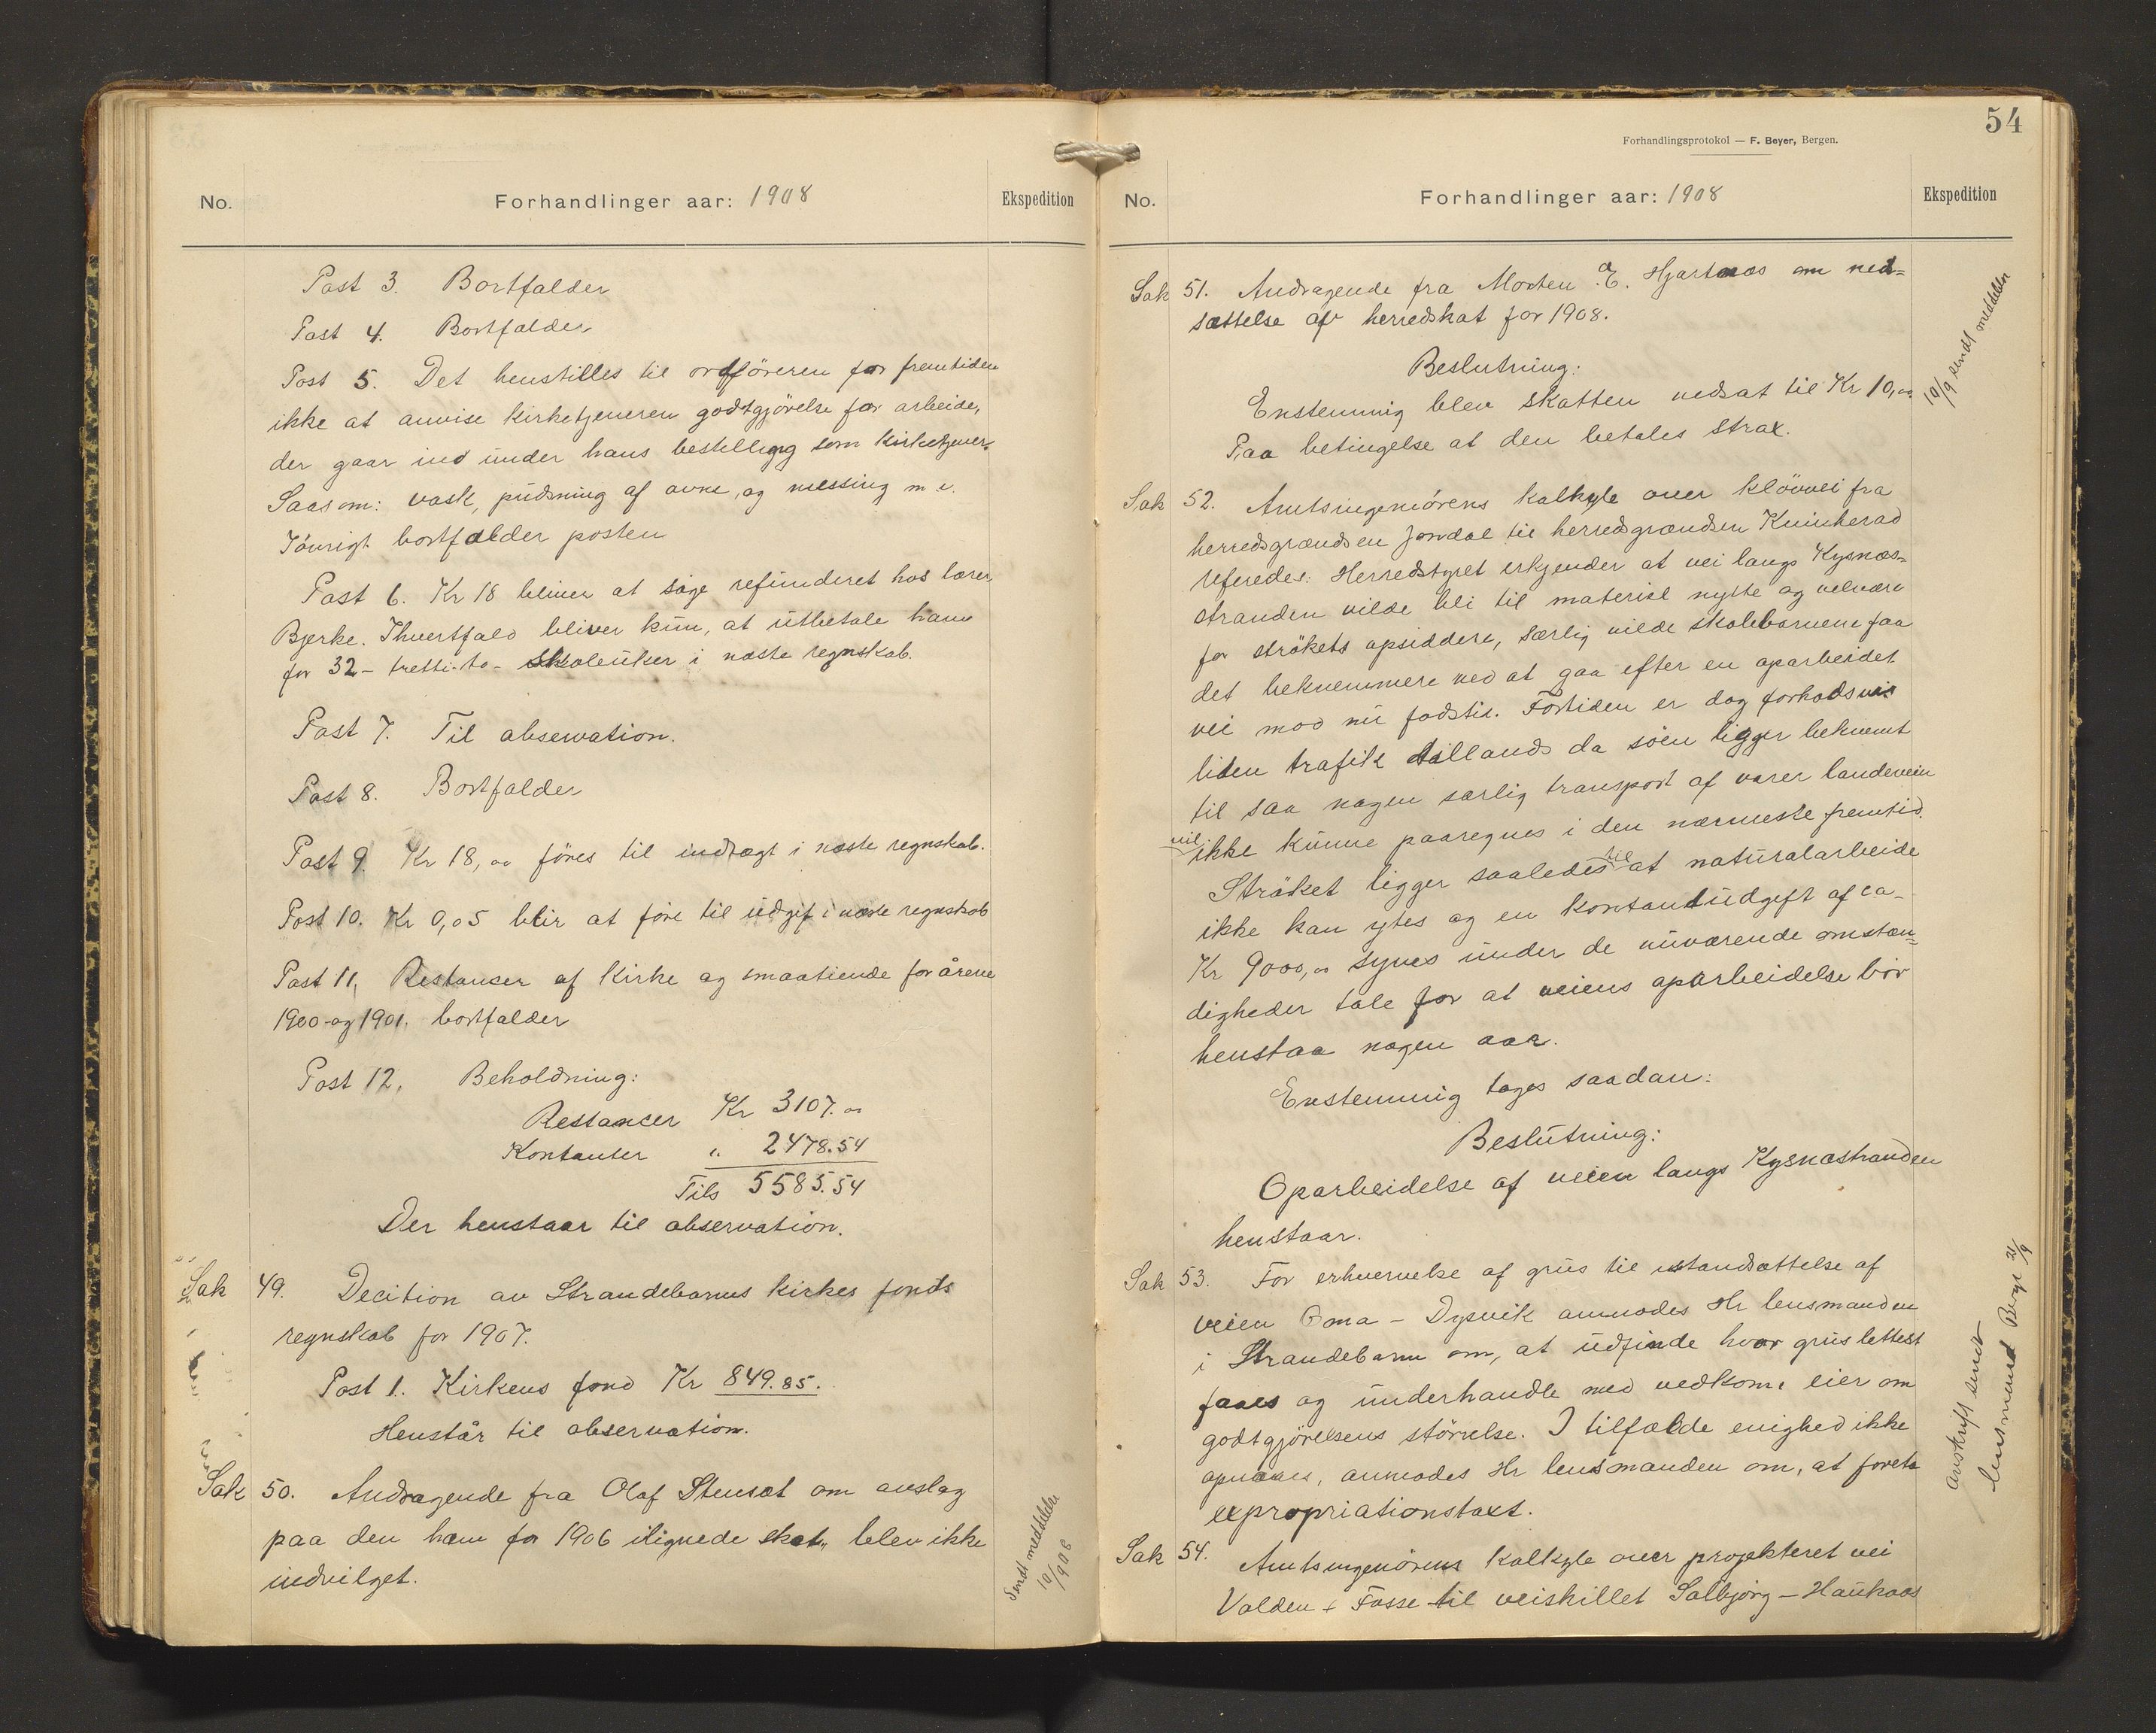 No.
Forhandlinger aar: 1908
Ekspedition
Post 3. Bortfalder
Post 4. Bortfalder
Post 5. Det henstilles til ordföreren for fremtiden
ikke at anvise kirketjeneren godtgjörelse for arbeide,
der gaar ind under hans bestilling som kirketjener.
Saasom: vask, pudsning af ovne, og messing m.v.
Iövrigt bortfalder posten
Post 6. Kr 18 bliver at söge refunderet hos lærer
Bjerke. Ihvertfald bliver kun, at utbetale ham
for 32 - tretti-to - skoleuker i næste regnskab.
Post 7. Til observation.
Post 8. Bortfalder
Post 9. Kr 18,00 föres til indtægt i næste regnskab.
Post 10. Kr 0,05 blir at före til udgift i næste regnskab
Post 11. Restanser af kirke og smaatiende for årene
1900-og 1901. bortfalder
Post 12. Beholdning:
Restancer Kr 3107.00
Kontanter " 2478.54
Tils 5585.54
Der henstaar til observation.
Sak 49. Decition av Strandebarms kirkes fonds
regnskab for 1907.
Post 1. Kirkens fond Kr 849.85.
Henstår til observation.
Sak 50. Andragende fra Olaf Stensæt om avslag
paa den ham for 1906 ilignede skat, blev ikke
indvilget.
Sendt meddelelse
10/9 08
54
Forhandlingsprotokol — F. Beyer, Bergen.
No.
Forhandlinger aar: 1908
Ekspedition
Sak 51. Andragende fra Morten E. Hjartnæs om ned=
sættelse af herredskat for 1908.
Beslutning:
Enstemmig blev skatten nedsat til Kr 10,00
Paa betingelse at den betales strax.
10/9 sendt meddelelse
Sak 52. Amtsingeniörens kalkyle over klövvei fra
herredsgrændsen Jondal til herredsgrændsen Kvinherad
referedes. Herredstyret erkjender at vei langs Kysnæs-
stranden vilde bli til materiel nytte og velvære
for strökets opsiddere, særlig vilde skolebarnene faa
det bekvemmere ved at gaa efter en oparbeidet
vei mod nu fodsti. Fortiden er dog forholdsvis
liden trafik tillands da söen ligger bekvemt
til saa nogen særlig transport af varer landeveien
vil ikke kunne paaregnes i den nærmeste fremtid.
Ströket ligger saaledes til at naturalarbeide
ikke kan ytes og en kontantudgift af ca-
Kr 9000,00 synes under de nuværende omstæn=
digheder tale for at veiens oparbeidelse bör
henstaa nogen aar.
Enstemmig toges saadan:
Beslutning:
Oparbeidelse af veien langs Kysnæstranden
henstaar.
Sak 53. For erhvervelse af grus til istandsættelse af
veien Oma - Dysvik anmodes Hr lensmanden
i Strandebarm om, at udfinde hvor grus lettest
faaes og underhandle med vedkom. eier om
godtgjörelsens störrelse. I tilfælde enighed ikke
opnaaes, anmodes Hr lensmanden om, at foreta
expropriationstaxt.
avskrift sendt
lensmand Berge 21/9
Sak 54. Amtsingeniörens kalkyle over projekteret vei
Valden + Fosse til veiskillet Solbjörg - Haukaas